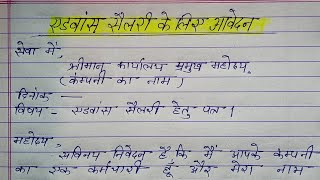 एडवांस सैलरी के लिए आवेदन
सेवा में,
श्रीमान कार्यालय प्रमुख महोदय,
(कंपनी का नाम)
दिनांक —
विषय - एडवांस सैलरी हेतु पत्र।
महोदय,
सविनय निवेदन है कि मैं आपके कंपनी
का एक कर्मचारी हूँ और मेरा नाम